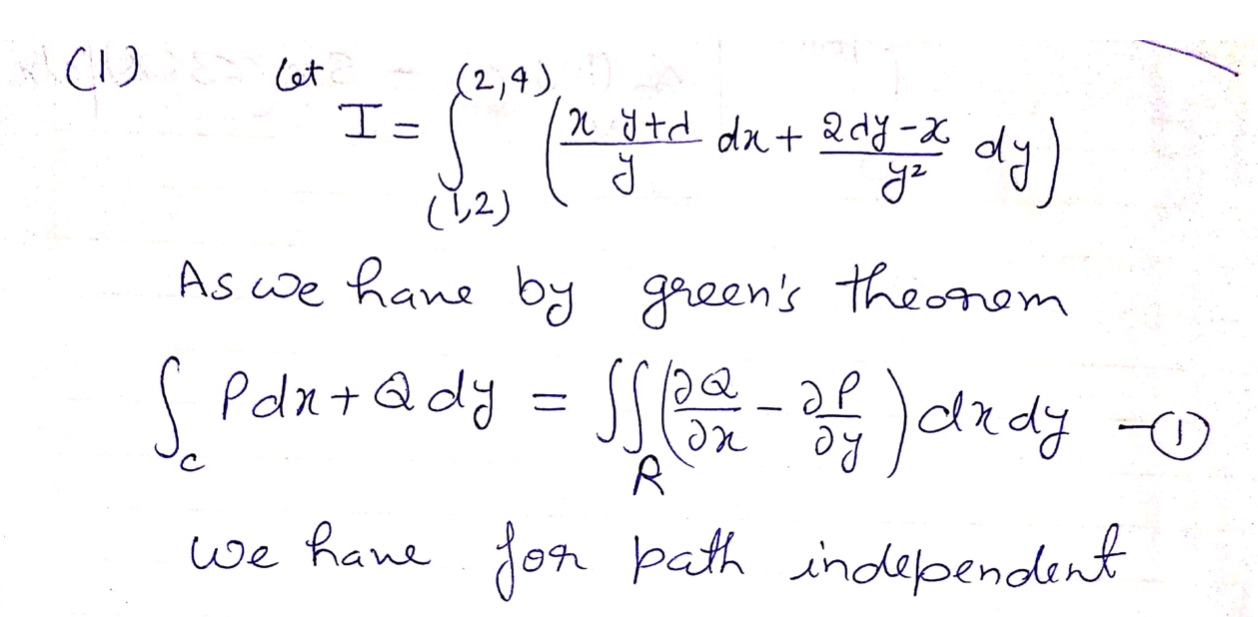 (1) Let I = ∫_{(1,2)}^{(2,4)} ( (x y+d)/y dx + (2dy-x)/y² dy )
As we have by green's theorem
∫_c Pdx + Q dy = ∬_R ( ∂Q/∂x - ∂P/∂y ) dx dy —①
we have for path independent